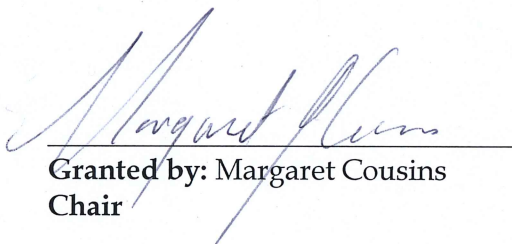 Margaret
Granted by: Margaret Cousins
Chair